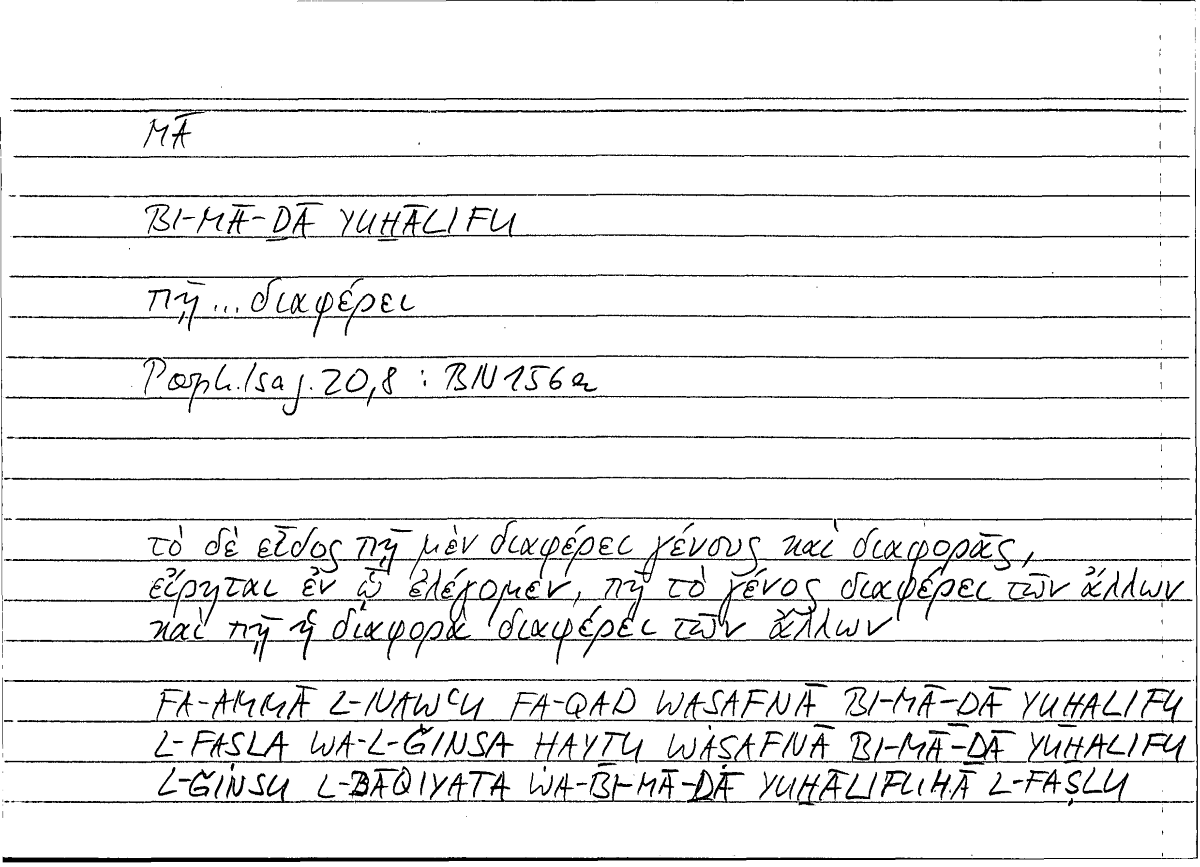 MĀ
BI-MĀ-ḎĀ YUḪĀLIFU
πῇ ... διαφέρει
Porph. Isag. 20,8 : BN 156a
τὸ δὲ εἶδος πῇ μὲν διαφέρει γένους καὶ διαφορᾶς,
εἴρηται ἐν ᾧ ἐλέγομεν, πῇ τὸ γένος διαφέρει τῶν ἄλλων
καὶ πῇ ἡ διαφορὰ διαφέρει τῶν ἄλλων
FA-AMMĀ L-NAWʿU FA-QAD WASAFNĀ BI-MĀ-ḎĀ YUḪALIFU
L-FASLA WA-L-ĞINSA HAYTU WASAFNĀ BI-MĀ-ḎĀ YUḪALIFU
L-ĞINSU L-BĀQIYATA WA-BI-MĀ-ḎĀ YUḪĀLIFUHĀ L-FAṢLU